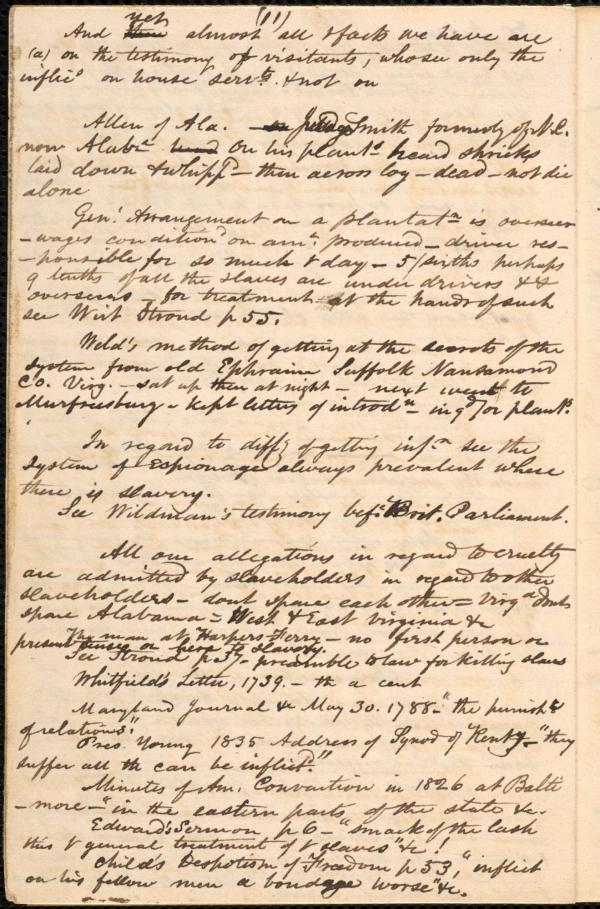 (11)
And yet almost all facts we have are
(a) on the testimony of visitants, who see only the
inflic<sup>s</sup> on house serv<sup>ts</sup>. & not on
Allen of Ala. Judge Smith formerly of N.C.
now Alab<sup>a</sup> On his plant<sup>n</sup> heard shrieks
laid down & whipp<sup>d</sup> – then across log – dead – not die
alone
Gen<sup>l</sup> Arrangement on a plantat<sup>n</sup> is overseer
– wages condition<sup>d</sup> on am<sup>t</sup> produced – driver res-
-ponsible for so much & day – 5/sixths perhaps
9 tenths of all the slaves are under drivers &
overseers – for treatment at the hands of such
see Wirt Stroud p 55.
Weld's method of getting at the secrets of the
system from old Ephraim Suffolk Nansamond
Co. Virg. – sat up then at night – next went to
Murfreesburg – kept letters of introd<sup>n</sup> – for plant<sup>s</sup>.
In regard to diff<sup>y</sup> of getting inf<sup>n</sup> see the
system of espionage always prevalent where
there is slavery.
See Wildman's testimony bef<sup>e</sup> Brit. Parliament.
All our allegations in regard to cruelty
are admitted by slaveholders in regard to other
slaveholders – dont spare each other = Virg<sup>a</sup> dont
spare Alabama = West & East Virginia &c
The man at Harpers Ferry – no first person or
present tense or here to slavery.
See Stroud p 37 – preamble to law for killing slaves
Whitfield's Letter, 1739. – th a cent
Maryland Journal &c May 30. 1788 – "the punish<sup>t</sup>
of relations."
Pres. Young 1835 Address of Synod of Kent<sup>y</sup> – "they
suffer all th can be inflict<sup>d</sup>."
Minutes of Am. Convention in 1826 at Balti
– more – "in the eastern parts of the state &c.
Edward's Sermon p 6 – "smack of the lash
this & general treatment of & slaves" &c!
Child's Despotism of Freedom p 53, "inflict
on his fellow men a bondage worse" &c.